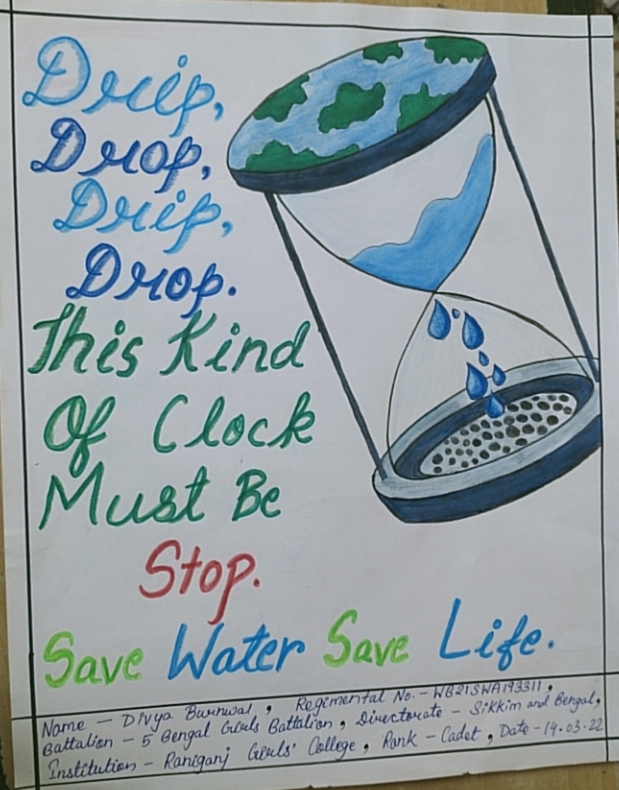 Drip,
Drop,
Drip,
Drop.
This Kind
Of Clock
Must Be
Stop.
Save Water Save Life.
Name - Divya Burnwal, Regimental No.- WB21SWA193311,
Battalion - 5 Bengal Girls Battalion, Directorate - Sikkim and Bengal,
Institution - Raniganj Girls' College, Rank - Cadet, Date - 14.03.22